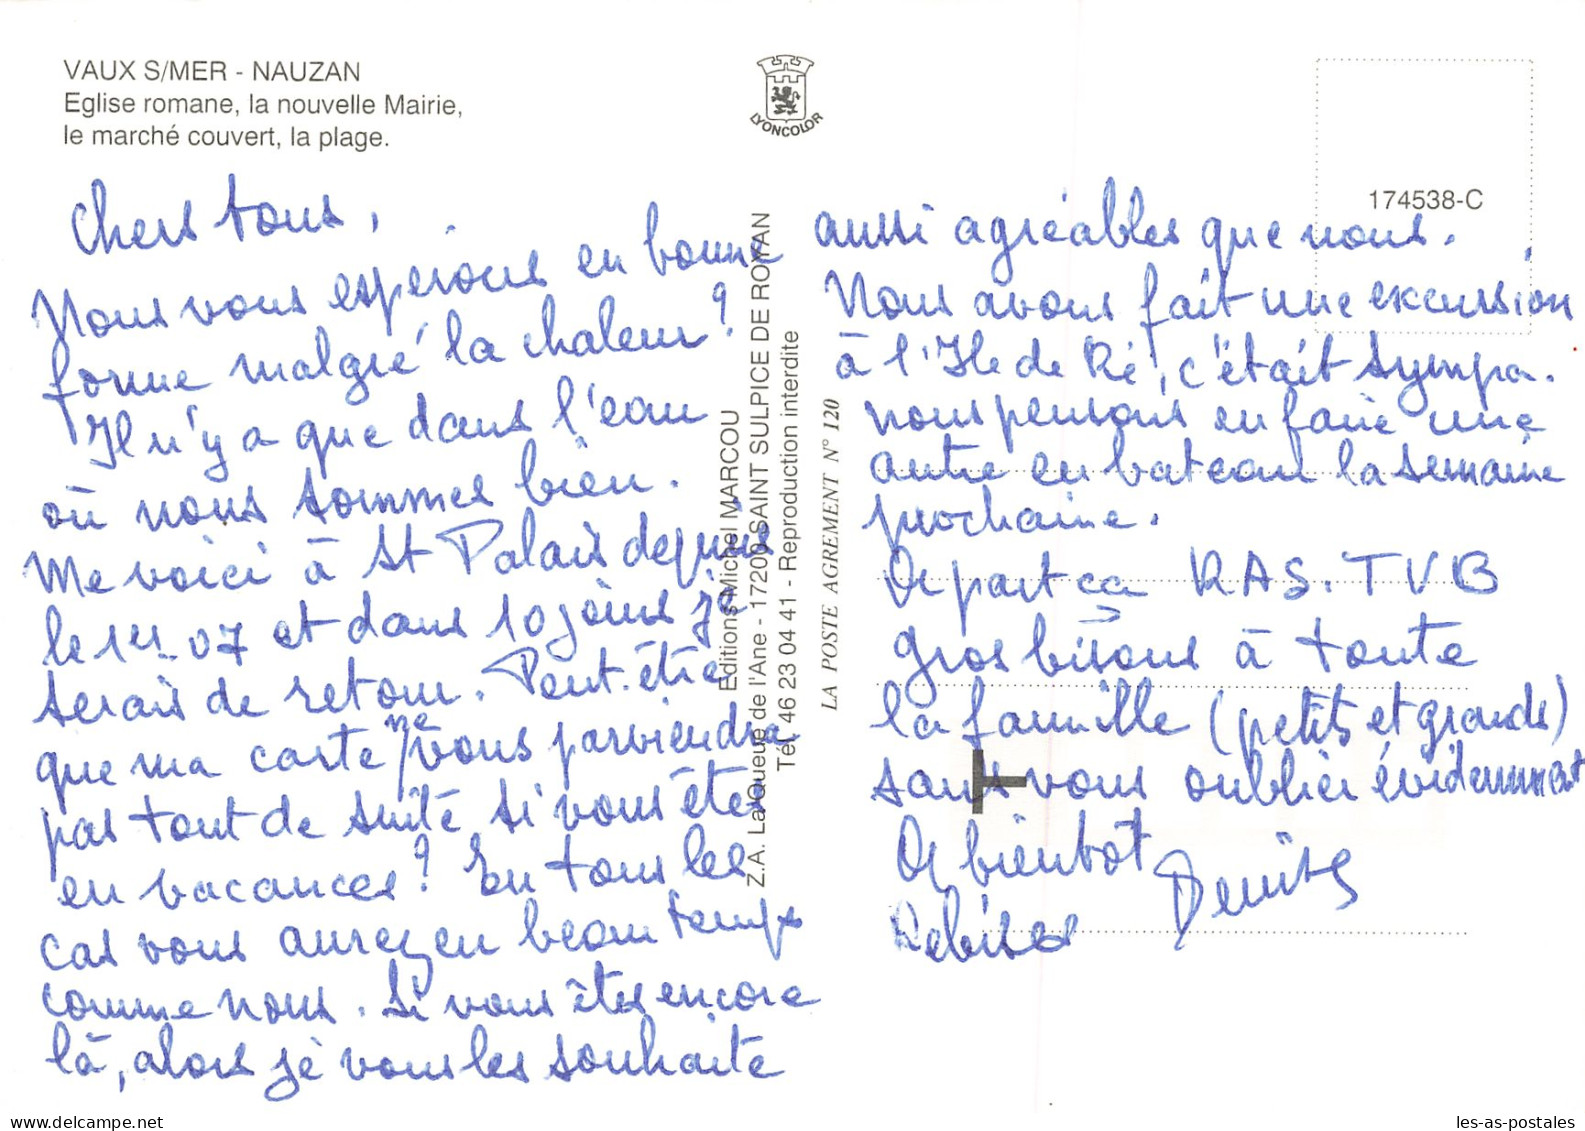 VAUX S/MER - NAUZAN
Eglise romane, la nouvelle Mairie,
le marché couvert, la plage.
LYONCOLOR
174538-C
Chers tous,
Nous vous espérons en bonne
forme malgré la chaleur ?
Il n'y a que dans l'eau
où nous sommes bien.
Me voici à St Palais depuis
le 1er 07 et dans 10 jours je
serais de retour. Peut-être
que ma carte ne vous parviendra
pas tout de suite si vous êtes
en vacances ? En tous les
cas vous aurez eu beau temps
comme nous. Si vous êtes encore
là, alors je vous les souhaite
Editions Michel MARCOU
Z.A. La Queue de l'Ane - 17200 SAINT SULPICE DE ROYAN
Tél. 46 23 04 41 - Reproduction interdite
LA POSTE AGREMENT N° 120
aussi agréables que nous.
Nous avons fait une excursion
à l'Ile de Ré, c'était sympa.
nous pensons en faire une
autre en bateau la semaine
prochaine.
A part ça RAS. TVB
Gros bisous à toute
la famille (petits et grands)
sans vous oublier évidemment
A bientôt
Rebises Denise
delcampe.net
les-as-postales